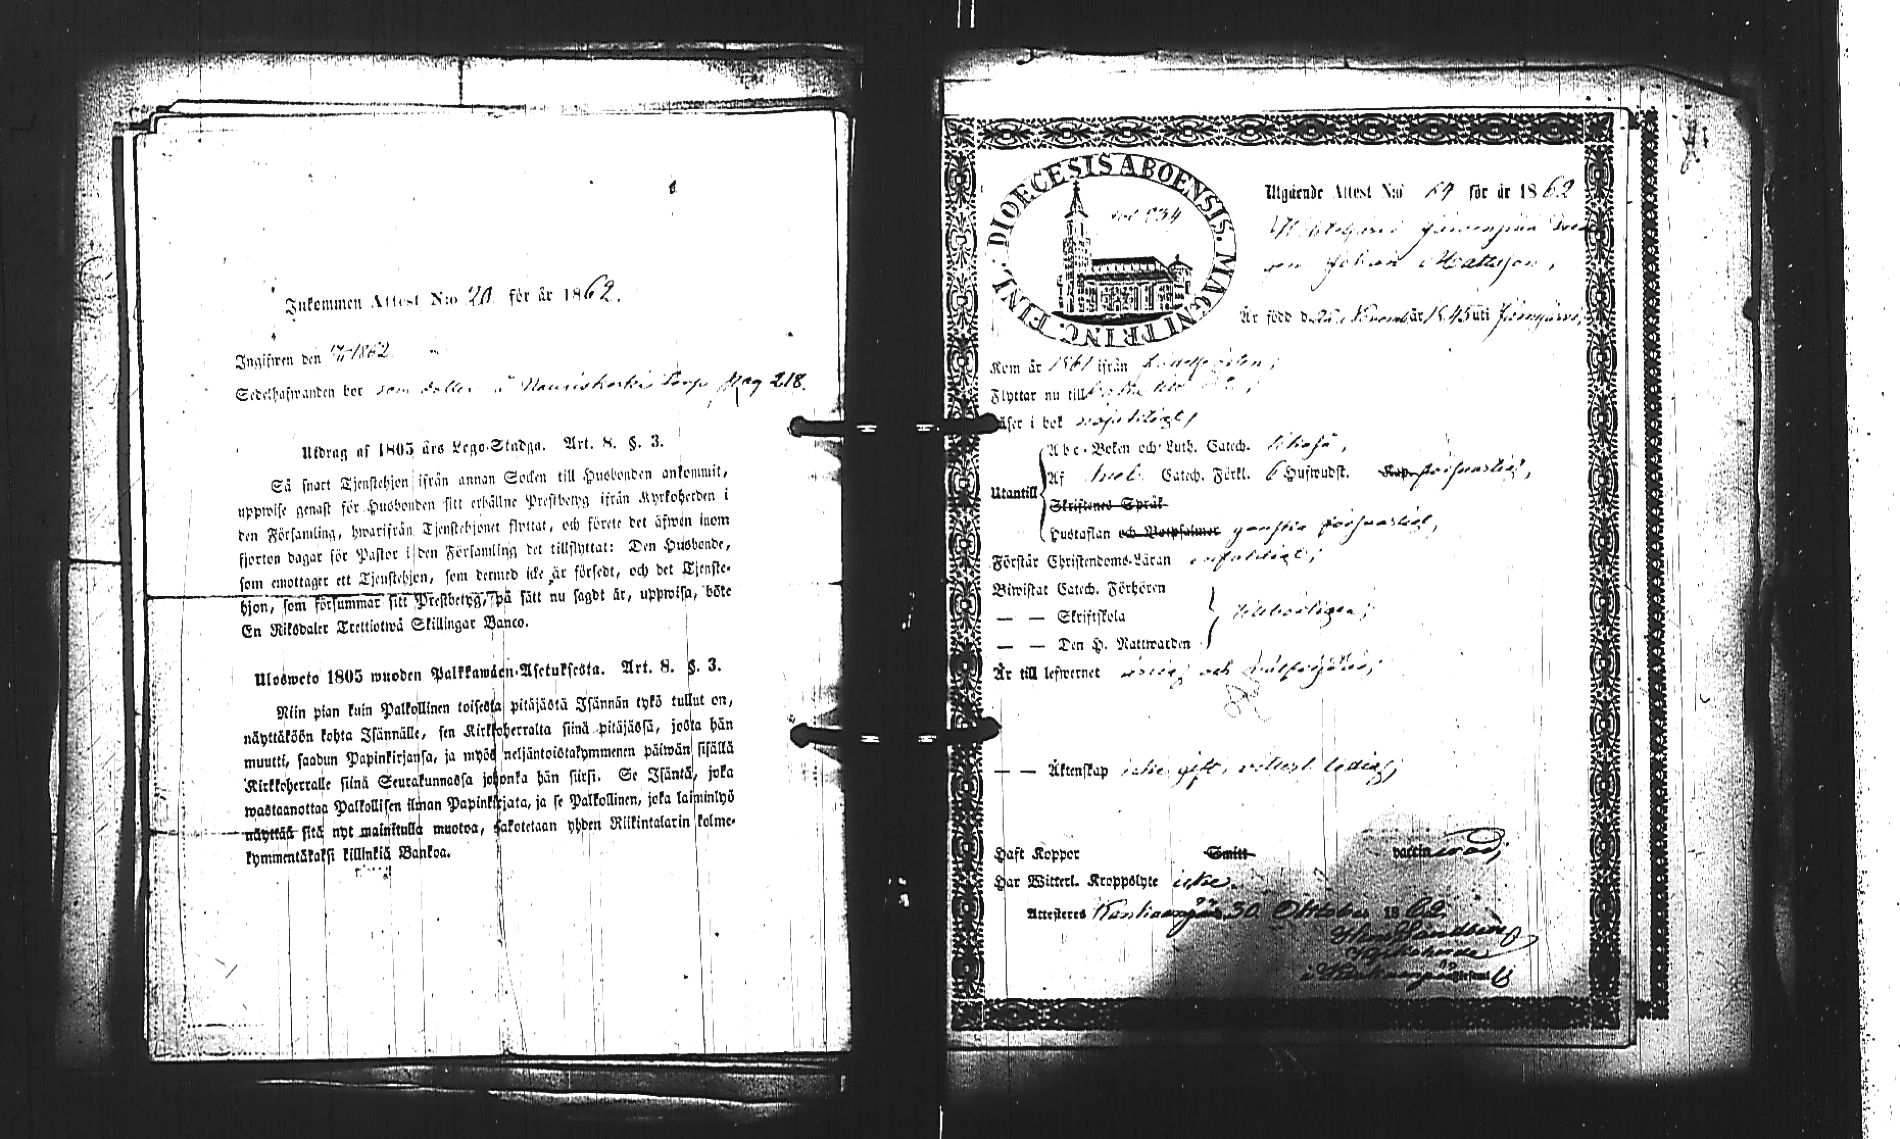 Inkommen Attest N:o 20 för år 1862.
Ingifwen den 17/11 1862
Sedelhafwanden bor som på Nauriskoski Torp pag 218.
Utdrag af 1805 års Lego-Stadga. Art. 8. §. 3.
Så snart Tjenstehjon ifrån annan Socken till Husbonden ankommit,
uppwise genast för Husbonden sitt erhållne Prestbetyg ifrån Kyrkoherden i
den Församling, hwarifrån Tjenstehjonet flyttat, och förete det äfwen inom
fjorton dagar för Pastor i den Församling det tillflyttat: Den Husbonde,
som emottager ett Tjenstehjon, som dermed icke är försedt, och det Tjenste-
hjon, som försummar sitt Prestbetyg, på sätt nu sagdt är, uppwisa, böte
En Riksdaler Trettiotwå Skillingar Banco.
Ulosweto 1805 wuoden Palkkawäen-Asetuksesta. Art. 8. §. 3.
Niin pian kuin Palkollinen toisesta pitäjästä Isännän tykö tullut on,
näyttäköön kohta Isännälle, sen Kirkkoherralta siinä pitäjässä, josta hän
muutti, saadun Papinkirjansa, ja myös neljäntoistakymmenen päiwän sisällä
Kirkkoherralle siinä Seurakunnassa johonka hän siirsi. Se Isäntä, joka
wastaanottaa Palkollisen ilman Papinkirjata, ja se Palkollinen, joka laiminlyö
näyttää sitä nyt mainitulla muotoa, sakotetaan yhden Riikintalarin kolme-
kymmentäkaksi killinkiä Bankoa.
DIOECESIS ABOENSIS. MAGNI PRINC. FINL.
Utgående Attest N:o 64 för år 1862
Johan Mattsson,
Är född d. 25 Novemb år 1845 uti Jämijärvi,
Kom år 1861 ifrån
Flyttar nu till
Läser i bok nöjaktigt,
Utantill
Abc-Boken och Luth. Catech. likaså,
Af Catech. Förkl. 6 Hufwudst. försvarligt,
Skriftenes Språk
Hustaflan och Botpsalmer ganska försvarligt,
Förstår Christendoms-Läran enfaldigt;
Biwistat Catech. Förhören
— — Skriftskola
— — Den H. Nattwarden
Är till lefwernet ärlig och välfrejdad;
— — Äktenskap icke gift, ledig;
Haft Koppor Smitt vaccin
Har Witterl. Kroppslyte icke.
Attesteras Kankaanpää 30 Oktober 1862.
Kyrkoherde